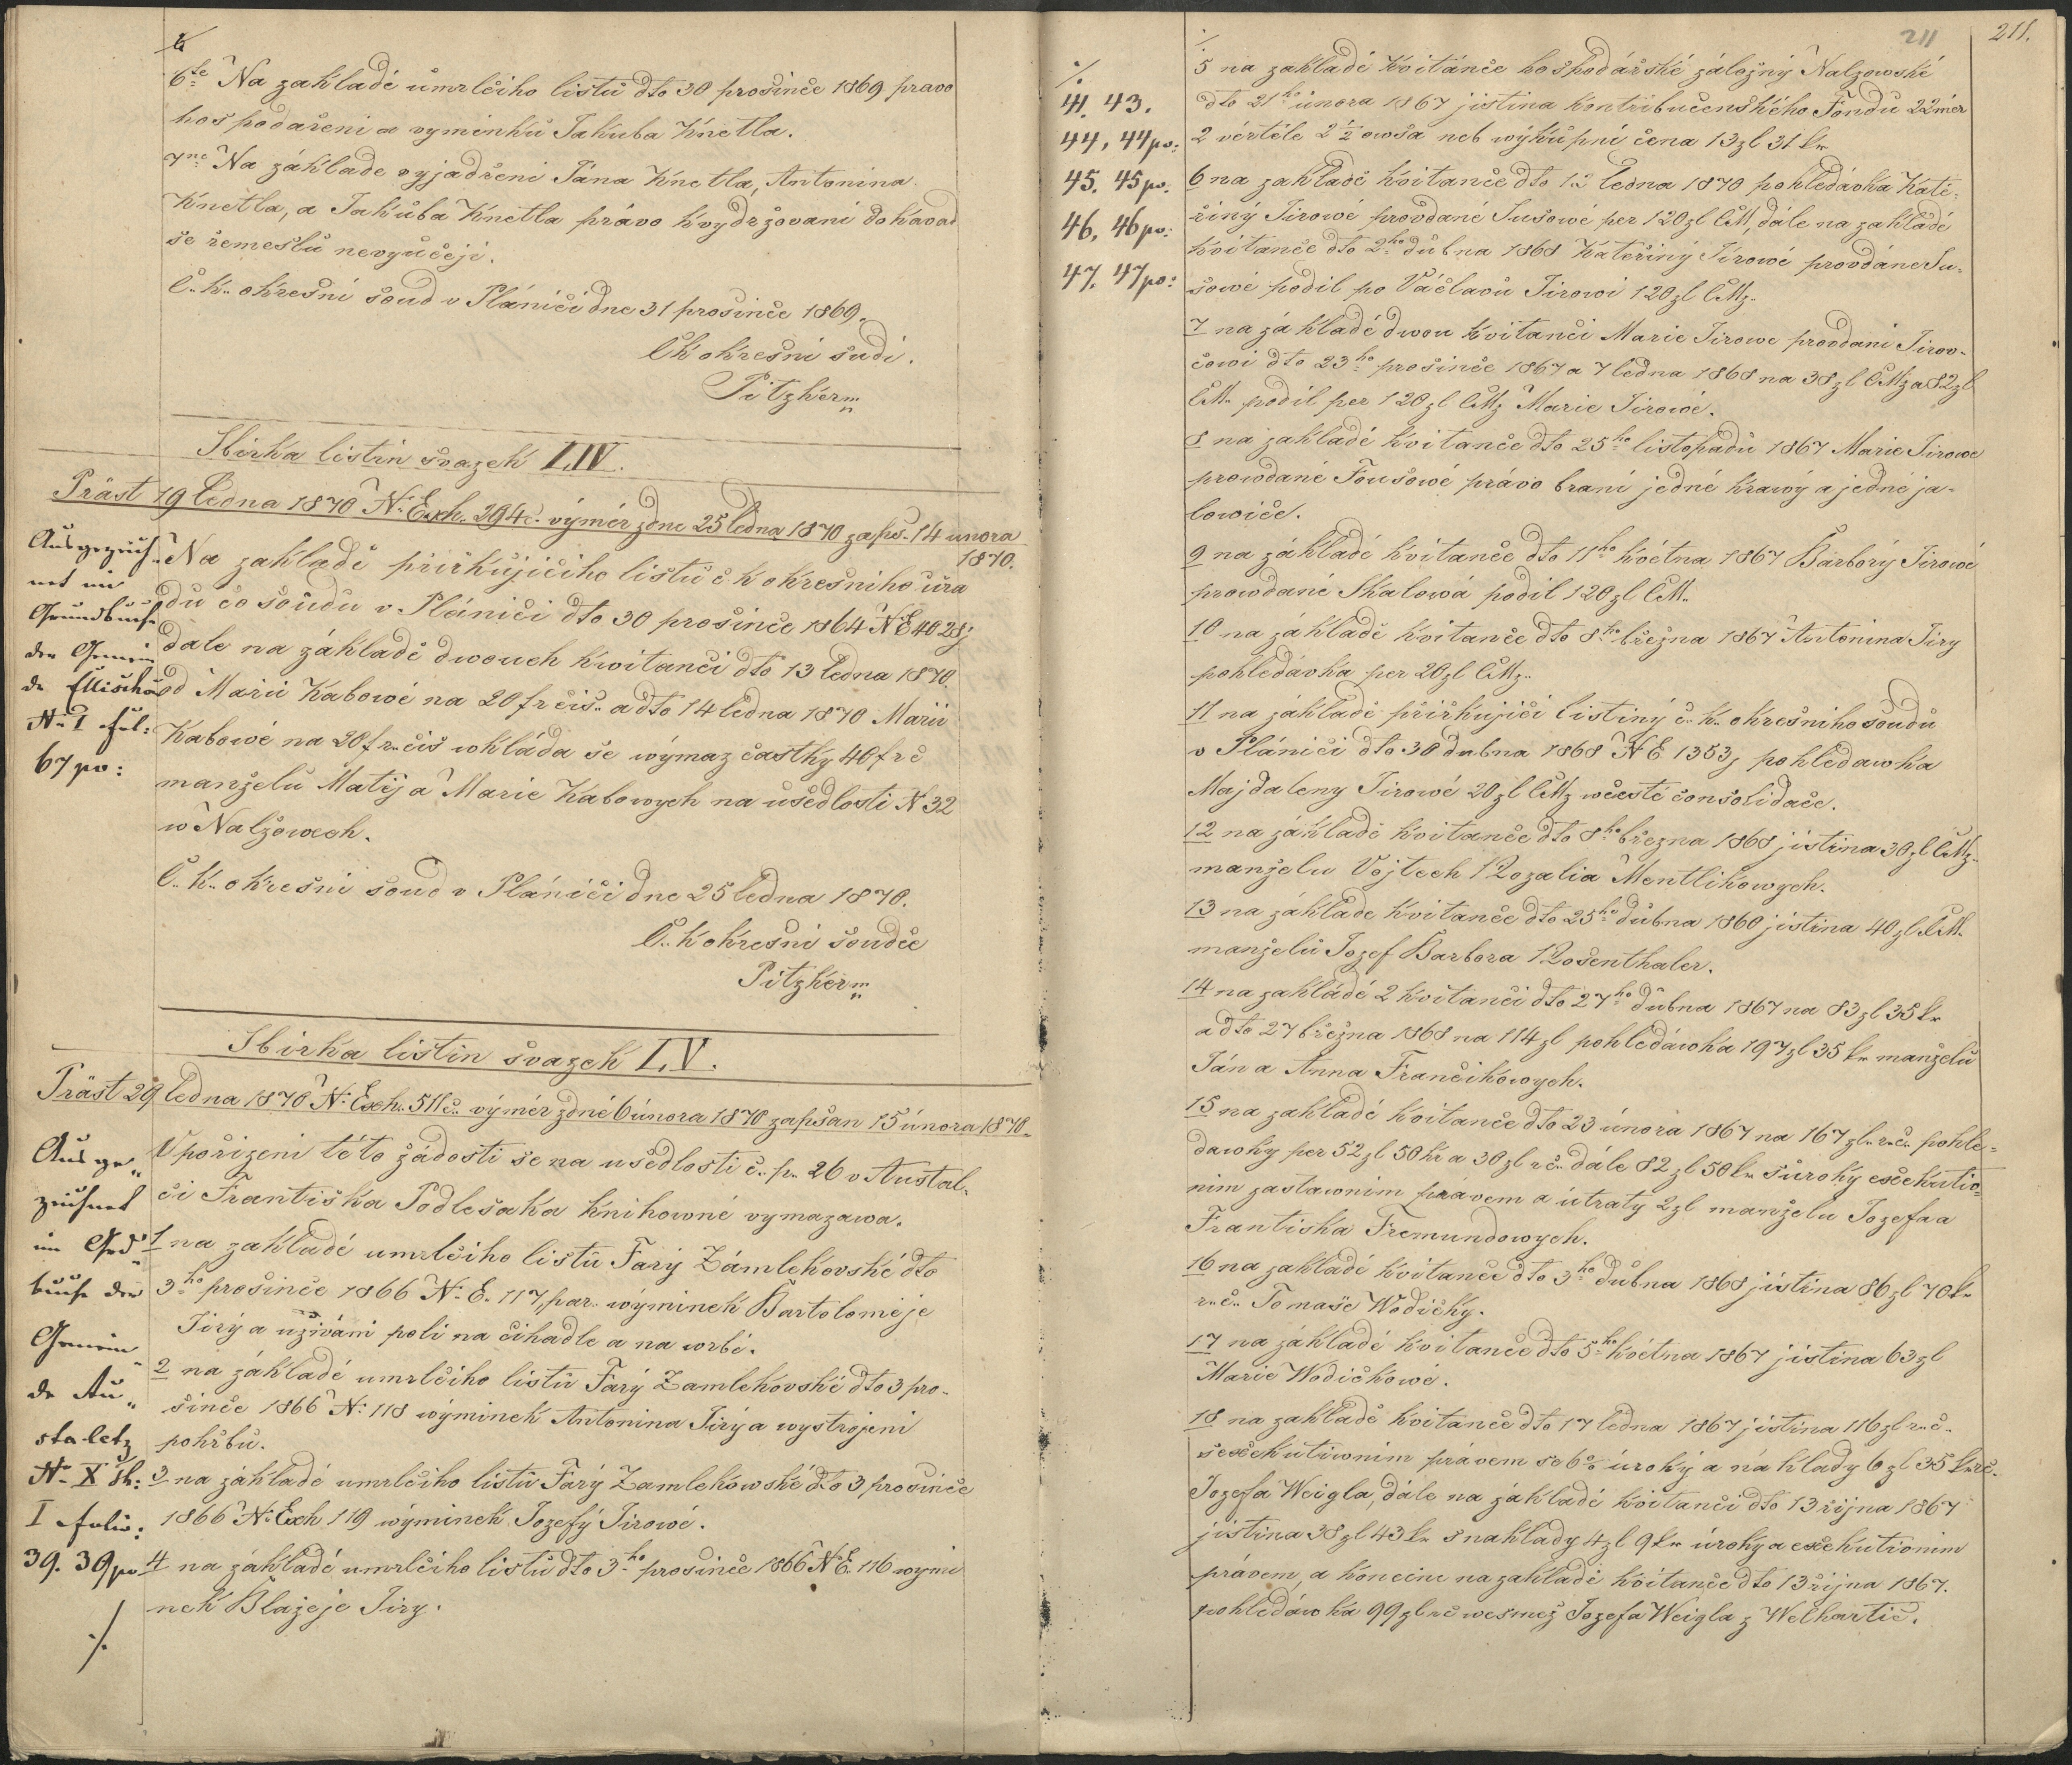 6te Na zakladě úmrlčiho listu dto 30 prosince 1869 pravo
hospodařeni a vyminku Jakuba Knetla.
7me Na základe vyjadřeni Jána Knetla, Antonina
Knetla, a Jakuba Knetla právo kvydržovaní dokavad
se řemeslu nevyučeji.
C. k. okresni soud v Plánici dne 31 prosince 1869.
Ck okresni sudi.
Pitzker m
Sbirka listin svazek LIV.
Präst 19 ledna 1870 N. Exh. 294 c. výměr zdne 25 ledna 1870 zaps. 14 unora
1870.
Ausgezeich-
net im
Grundbuche
der Gemein
de Ellischau
N. I fol:
67 po:
Na zakladě přiřkujiciho listu c k okresniho úřa
du co soudu v Plánici dto 30 prosince 1864 N E 4028j
dale na základě dwouch kwitanci dto 13 ledna 1870.
od Marii Kabowé na 20 fr čis. a dto 14 ledna 1870 Marii
Kabowé na 20 fr čis wkláda se wýmaz častky 40 fr č
manželu Matěj a Marie Kabowych na usedlosti N 32
w Nalžowech.
C. k. okresni soud v Plánici dne 25 ledna 1870.
C. k okresni soudce
Pitzker m
Sbirka listin svazek LV.
Präst 29 ledna 1870 N. Exh. 511 c. výměr zdné 6 února 1870 zapsan 15 února 1870.
Ausge-
zeichnet
im Grd-
buche der
Gemein-
de Au-
staletz
N. X
I folio:
39. 39 po
./.
V pořizeni této žádosti se na usedlosti č. p. 26 v Austal-
ci Frantiska Podlesaka knihowně vymazawa.
1 na zakladě umrlčiho listu Fary Zámlekovské dto
3ho prosince 1866 N. E. 117, par. wýminek Bartoloměje
Jirý a užíváni poli na čihadle a na wrbě.
2 na základě umrlčiho listu Farý Zamlekovské dto 3 pro-
since 1866 N. 118 wýminek Antonina Jirý a wystrojeni
pohřbu.
3 na základě umrlčiho listu Farý Zamlekowské dto 3 prosince
1866 N. Exh 119 wýminek Jozefý Jirowé.
4 na základě umrlčiho listu dto 3ho prosince 1866 N E. 116 wymi
nek Blažeje Jiry.
211
211.
./.
41. 43.
44, 44 po:
45. 45 po.
46, 46 po:
47, 47 po:
./.
5 na zakladě kvitánce hospodářské záložný Nalzowské
dto 21ho února 1867 jistina kontribučenského Fondu 22 měr
2 věrtele 2 1/2 owsa neb wýkupní cena 13 zl 31 kr
6 na zakladě kvitance dto 12 ledna 1870 pohledávka Kate-
řiný Jirowé provdané Susowé per 120 zl CM, dále na zakladě
kvitance dto 2ho dubna 1868 Kateřiný Jirowé provdáne Su-
sowé podil po Váčlavu Jirowi 120 zl CMz.
7 na základě dwou kvitanci Marie Jirowe provdani Jirov-
cowi dto 23ho prosince 1867 a 7 ledna 1868 na 38 zl CMz a 82 zl
CM. podil per 120 zl CMz Marie Jirowé.
8 na zakladě kvitance dto 25ho listopadu 1867 Marie Jirowe
prowdané Fousowé právo braní jedné krawý a jedné ja-
lowice.
9 na základě kvitance dto 11ho května 1867 Barborý Jirowé
prowdané Skalowá podil 120 zl CM.
10 na základě kvitance dto 8ho března 1867 Antonina Jiry
pohledávka per 20 zl CMz.
11 na základě přiřkujici listiný c. k. okresniho soudu
v Plánici dto 30 dubna 1868 N E 1353j pohledawka
Majdaleny Jirowé 20 zl CMz wčestě consolidace.
12 na základě kvitance dto 8ho března 1868 jistina 30 zl CMz.
manželu Vojtech Rozalia Mentlikowych.
13 na základe kvitance dto 25ho dubna 1860 jistina 40 zl CM.
manželu Jozef Barbora Rosenthaler.
14 na zakladě 2 kvitanci dto 27ho dubna 1867 na 83 zl 35 kr
a dto 27 března 1868 na 114 zl pohledáwka 197 zl 35 kr manželu
Ján a Anna Francikowych.
15 na zakladě kvitance dto 23 února 1867 na 167 zl. r. č. pohle-
dawky per 52 zl 50 kr a 30 zl r č. dále 82 zl 50 kr s úroky exekutio-
nim zastawnim právem a útraty 2 zl manželu Jozefa a
Frantiska Fremundowych.
16 na zakladě kvitance dto 3ho dubna 1868 jistina 86 zl 70 kr
r. č. Tomaše Wodičký.
17 na základě kvitance dto 5ho května 1867 jistina 63 zl
Marie Wodičkowé.
18 na zakladě kvitance dto 17 ledna 1867 jistina 116 zl r. č.
sexekutiwnim právem se 6% úroký a náklady 6 zl 35 kr r č.
Jozefa Weigla, dále na základě kvitanci dto 13 října 1867
jistina 38 zl 43 kr s naklady 4 zl 9 kr úroky a exekutionim
právem, a konečne na zakladě kvitance dto 13 října 1867.
pohledávka 99 zl r č wesmez Jozefa Weigla z Welhartic.